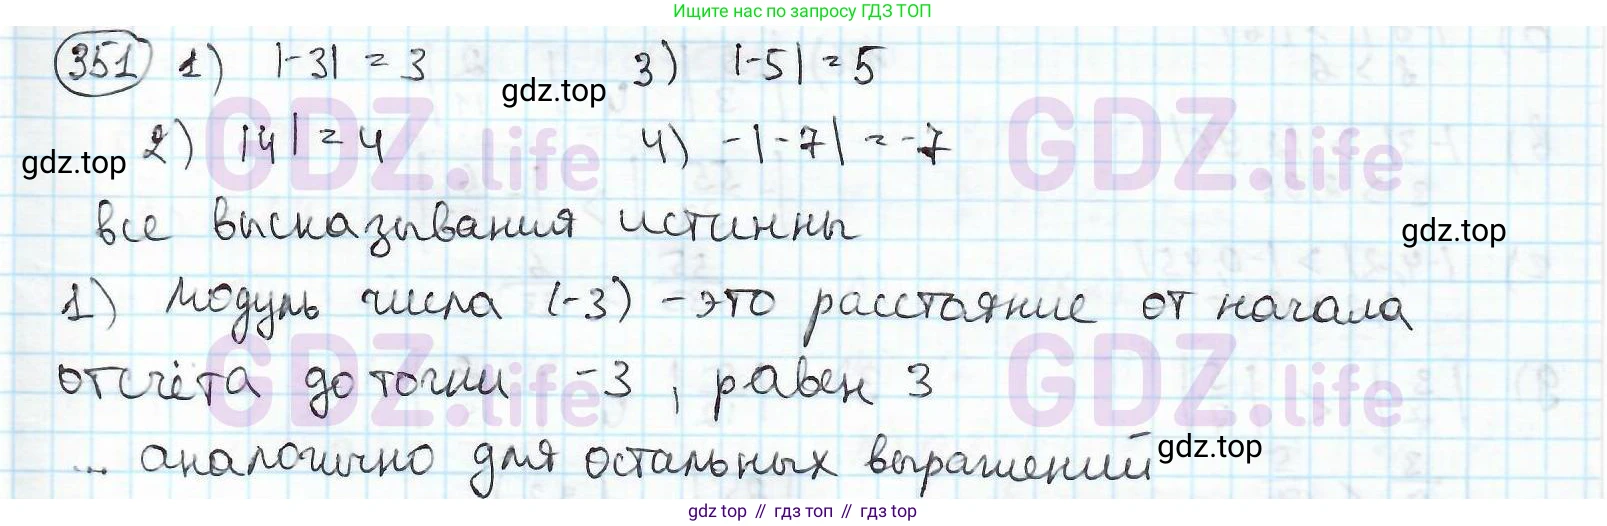 Ищите нас по запросу ГДЗ ТОП
351 1) |-3| = 3 3) |-5| = 5
gdz.top
2) |4| = 4 4) -|-7| = -7
gdz.top
GDZ.life GDZ.life
все высказывания истинны
gdz.top
1) Модуль числа (-3) - это расстояние от начала
отсчёта до точки -3, равен 3
GDZ.life GDZ.life
... аналогично для остальных выражений
gdz.top
gdz top // гдз топ // gdz top